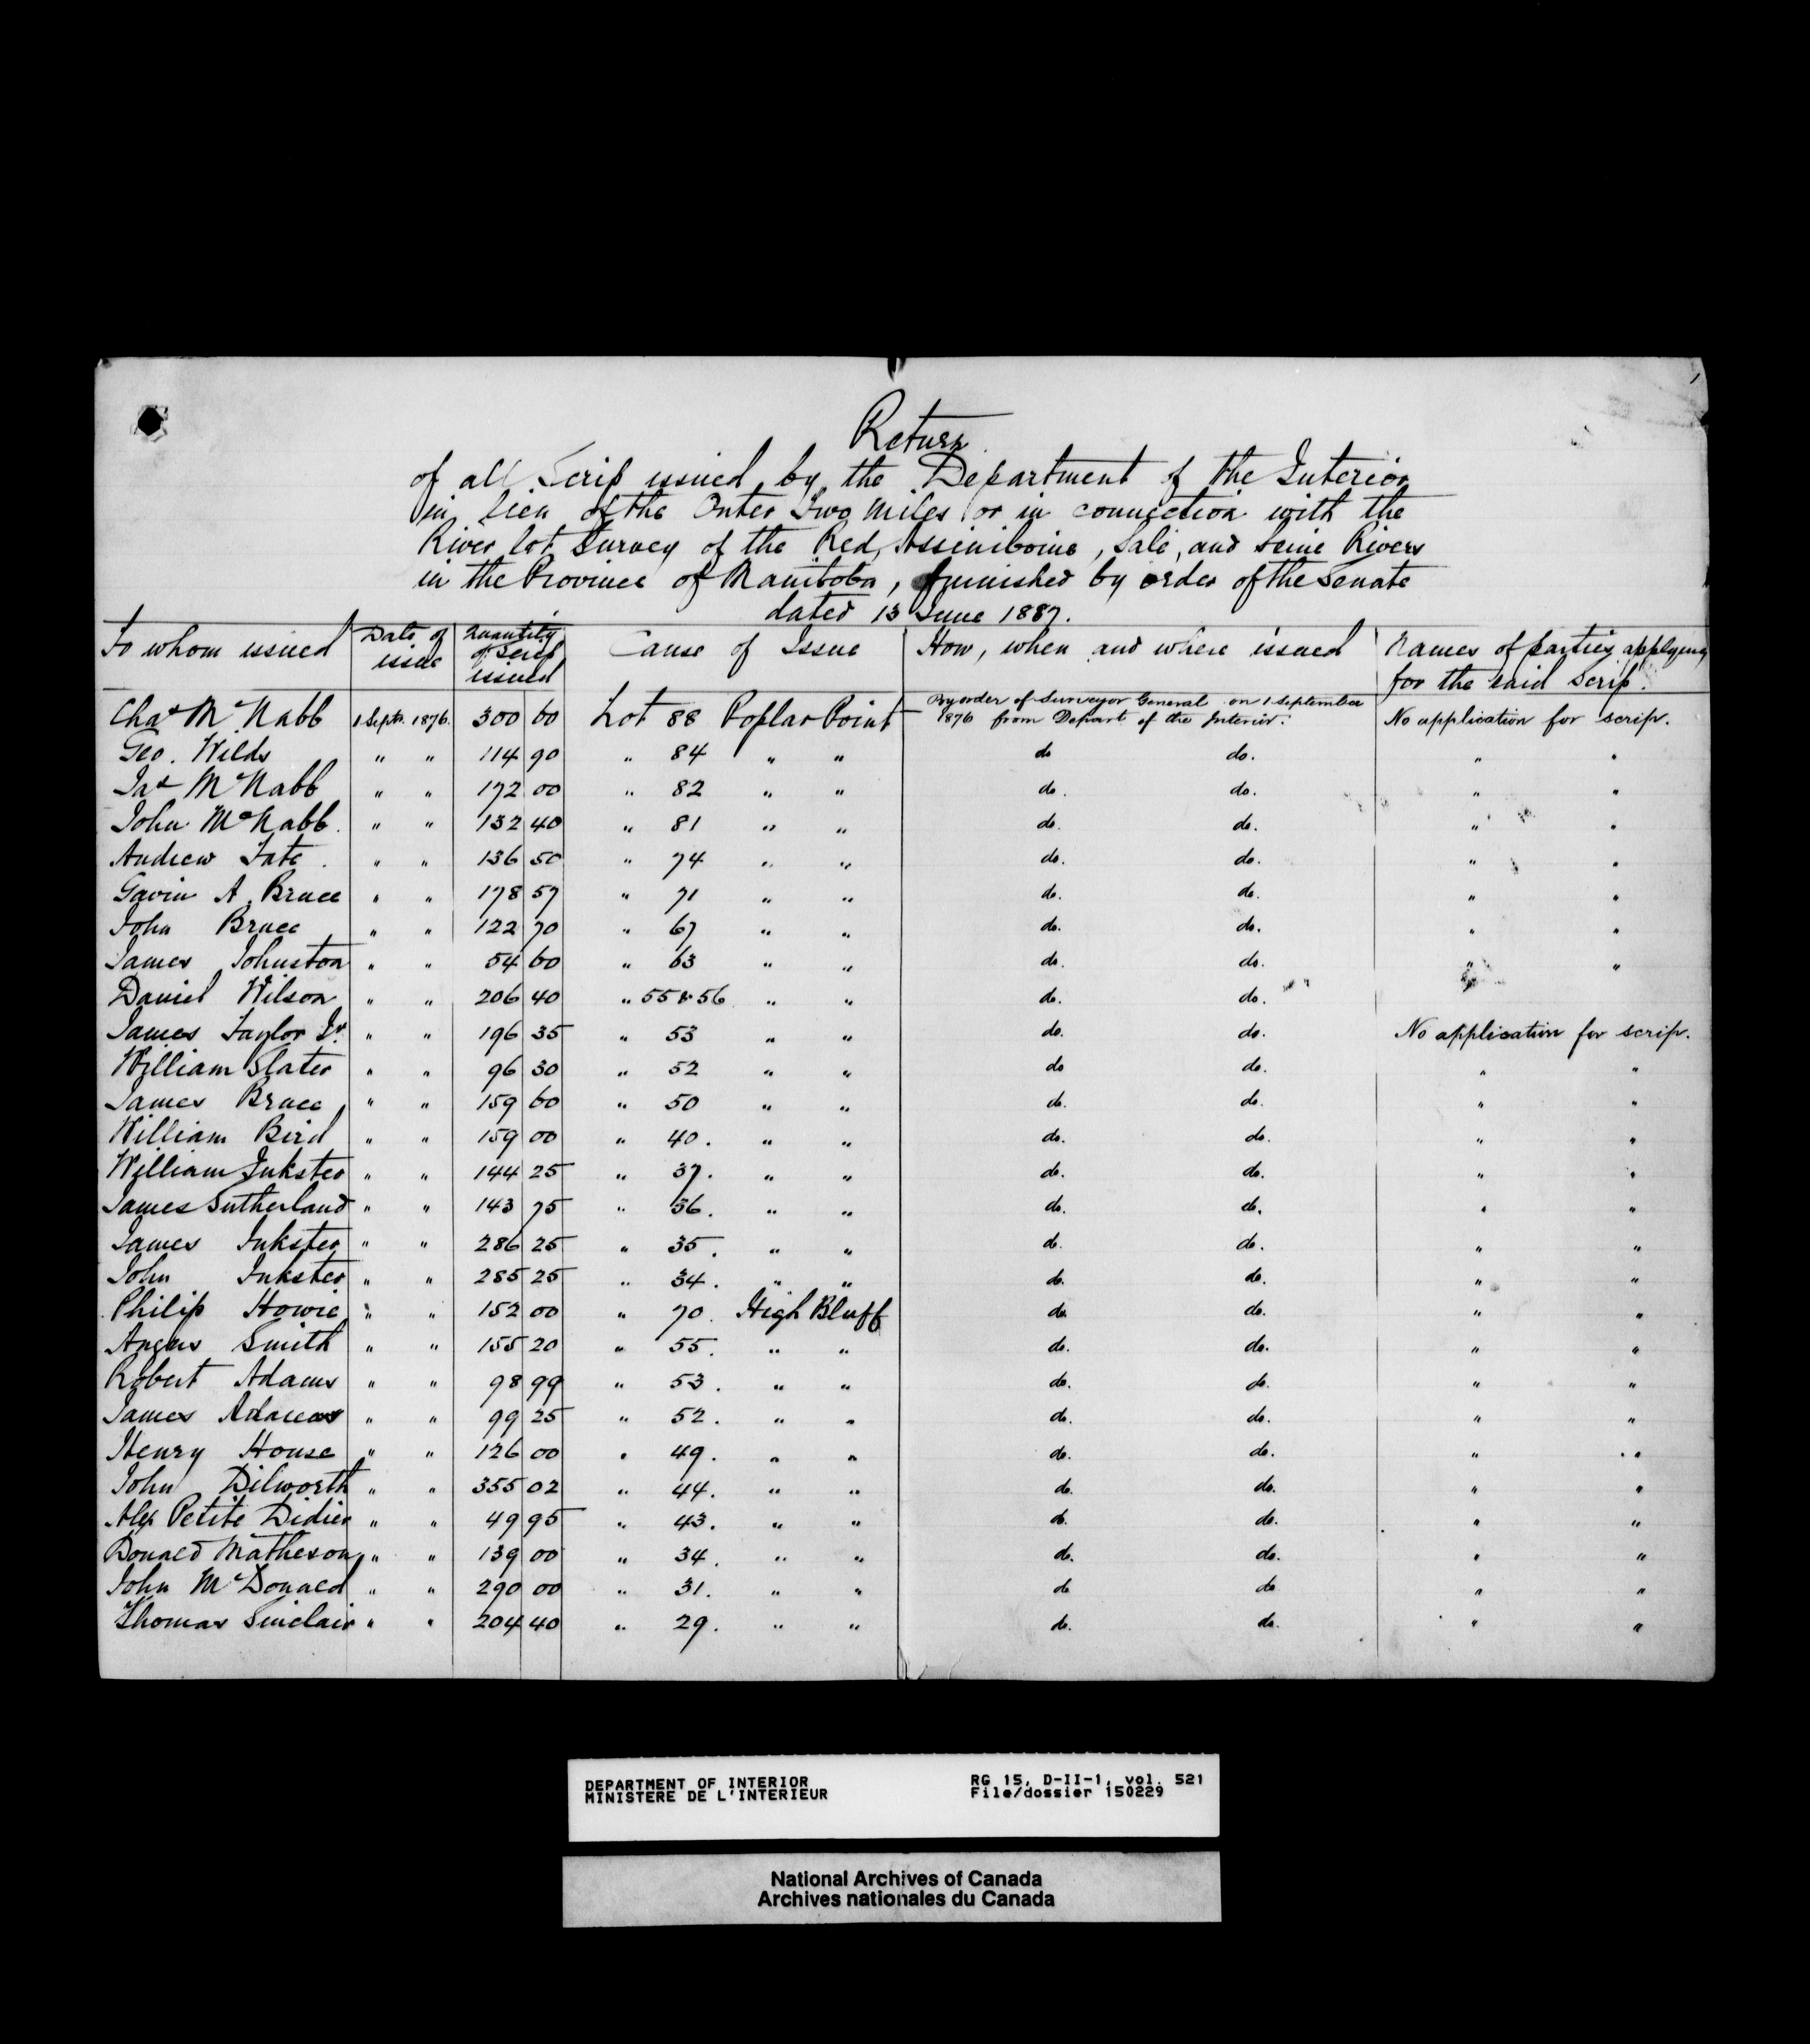 1
Return
of all Scrip issued by the Department of the Interior
in lieu of the Outer Two Miles or in connection with the
River lot Survey of the Red, Assiniboine, Sale, and Seine Rivers
in the Province of Manitoba, furnished by order of the Senate
dated 13 June 1887.
To whom issued | Date of issue | Quantity of Scrip issued | Cause of Issue | How, when and where issued | Names of parties applying for the said Scrip.
Chas McNabb 1 Sept. 1876. 300 60 Lot 88 Poplar Point By order of Surveyor General on 1 September 1876 from Depart. of the Interior. No application for scrip.
Geo. Wilds " " 114 90 " 84 " " do do. " "
Jas McNabb " " 172 00 " 82 " " do. do. " "
John McNabb. " " 132 40 " 81 " " do. do. " "
Andrew Tate. " " 136 50 " 74 " " do. do. " "
Gavin A. Bruce " " 178 57 " 71 " " do. do. " "
John Bruce " " 122 70 " 67 " " do. do. " "
James Johnston " " 54 60 " 63 " " do. do. " "
Daniel Wilson " " 206 40 " 55 & 56 " " do. do.
James Taylor Jr. " " 196 35 " 53 " " do. do. No application for scrip.
William Slater " " 96 30 " 52 " " do do. " "
James Bruce " " 159 60 " 50 " " do. do. " "
William Bird " " 159 00 " 40. " " do. do. " "
William Inkster " " 144 25 " 37. " " do. do. " "
James Sutherland " " 143 75 " 36. " " do. do. " "
James Inkster " " 286 25 " 35. " " do. do. " "
John Inkster " " 285 25 " 34. " " do. do. " "
Philip Howie " " 152 00 " 70. High Bluff do. do. " "
Angus Smith " " 155 20 " 55. " " do. do. " "
Robert Adams " " 98 99 " 53. " " do. do. " "
James Adams " " 99 25 " 52. " " do. do. " "
Henry House " " 126 00 " 49. " " do. do. " "
John Dilworth " " 355 02 " 44. " " do. do. " "
Alex Petite Didier " " 49 95 " 43. " " do. do. " "
Donald Matheson " " 139 00 " 34. " " do. do. " "
John McDonald " " 290 00 " 31. " " do do " "
Thomas Sinclair " " 204 40 " 29. " " do. do. " "
DEPARTMENT OF INTERIOR RG 15, D-II-1, vol. 521
MINISTERE DE L'INTERIEUR File/dossier 150229
National Archives of Canada
Archives nationales du Canada